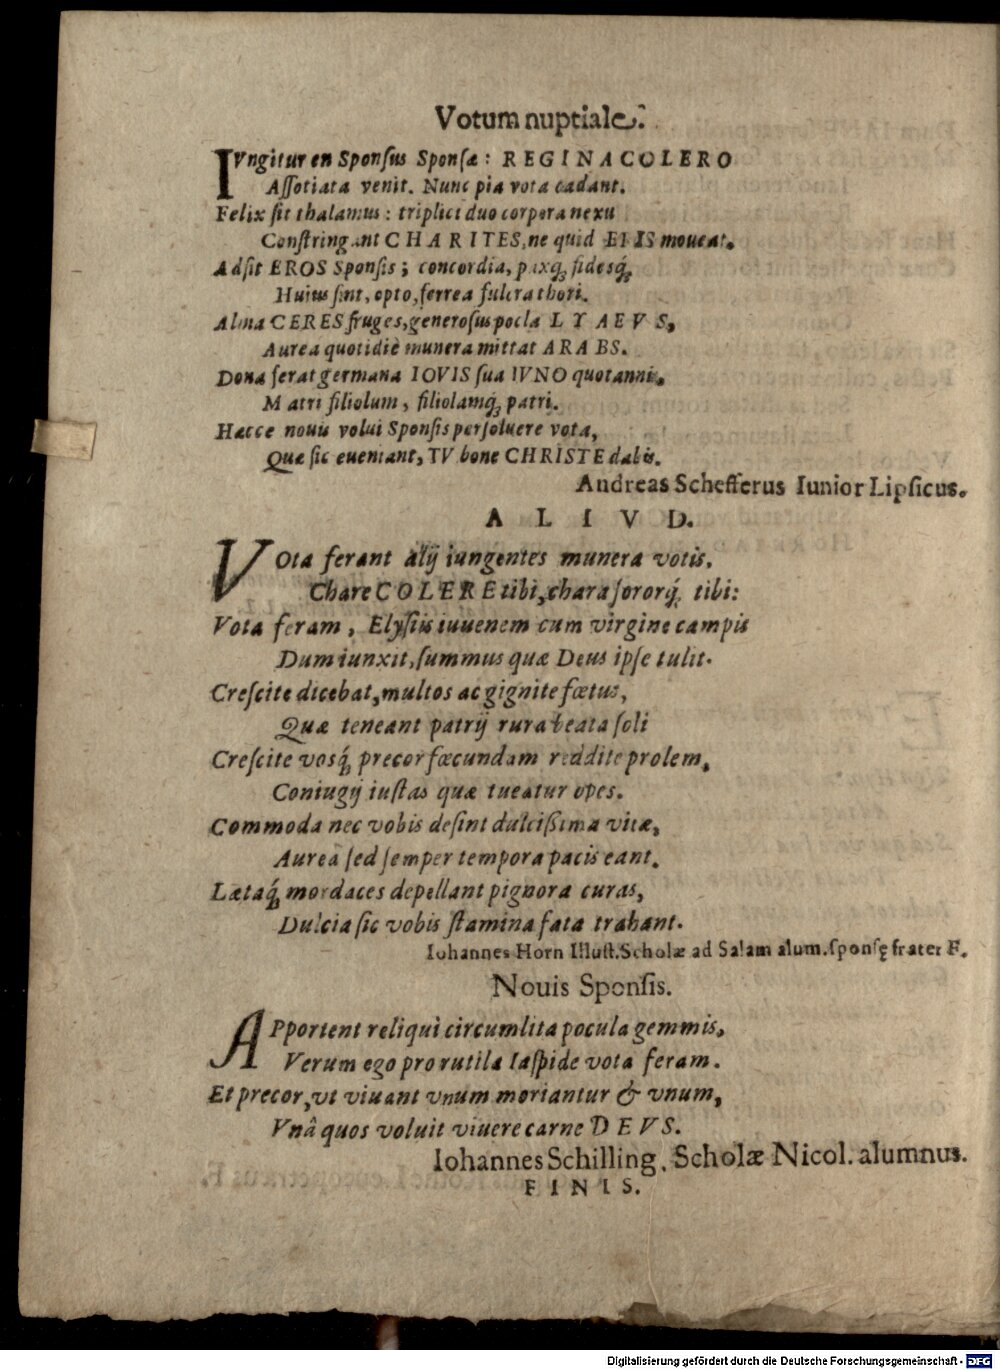 Votum nuptiale.
IVngitur en Sponſus Sponſæ: REGINA COLERO
Aſſotiata venit. Nunc pia vota cadant.
Felix ſit thalamus: triplici duo corpora nexu
Conſtringant CHARITES, ne quid ERIS moveat.
Adſit EROS Sponſis; concordia, paxq́; fidesq́;
Huius ſint, opto, ferrea fulcra thori.
Alma CERES fruges, generoſus pocla LYAEVS,
Aurea quotidiè munera mittat ARABS.
Dona ferat germana IOVIS ſua IVNO quotannis,
Matri filiolum, filiolamq́; patri.
Hæcce nouis volui Sponſis perſoluere vota,
Quæ ſic eueniant, TV bone CHRISTE dabis.
Andreas Schefferus Iunior Lipſicus.
ALIVD.
VOta ferant alij iungentes munera votis,
Chare COLERE tibi, chara ſororq́; tibi:
Vota feram, Elyſiis iuuenem cum virgine campis
Dum iunxit, ſummus quæ Deus ipſe tulit.
Creſcite dicebat, multos ac gignite fœtus,
Quæ teneant patrij rura beata ſoli
Creſcite vosq́; precor fœcundam reddite prolem,
Coniugij iuſtas quæ tueatur opes.
Commoda nec vobis deſint dulciſsima vitæ,
Aurea ſed ſemper tempora pacis eant.
Lætaq́; mordaces depellant pignora curas,
Dulcia ſic vobis ſtamina fata trahant.
Iohannes Horn Illuſt. Scholæ ad Salam alum. ſponſę frater F.
Nouis Sponſis.
APportent reliqui circumlita pocula gemmis,
Verum ego pro rutila Iaſpide vota feram.
Et precor, vt viuant vnum moriantur & vnum,
Vnâ quos voluit viuere carne DEVS.
Iohannes Schilling, Scholæ Nicol. alumnus.
FINIS.
Digitalisierung gefördert durch die Deutsche Forschungsgemeinschaft - DFG